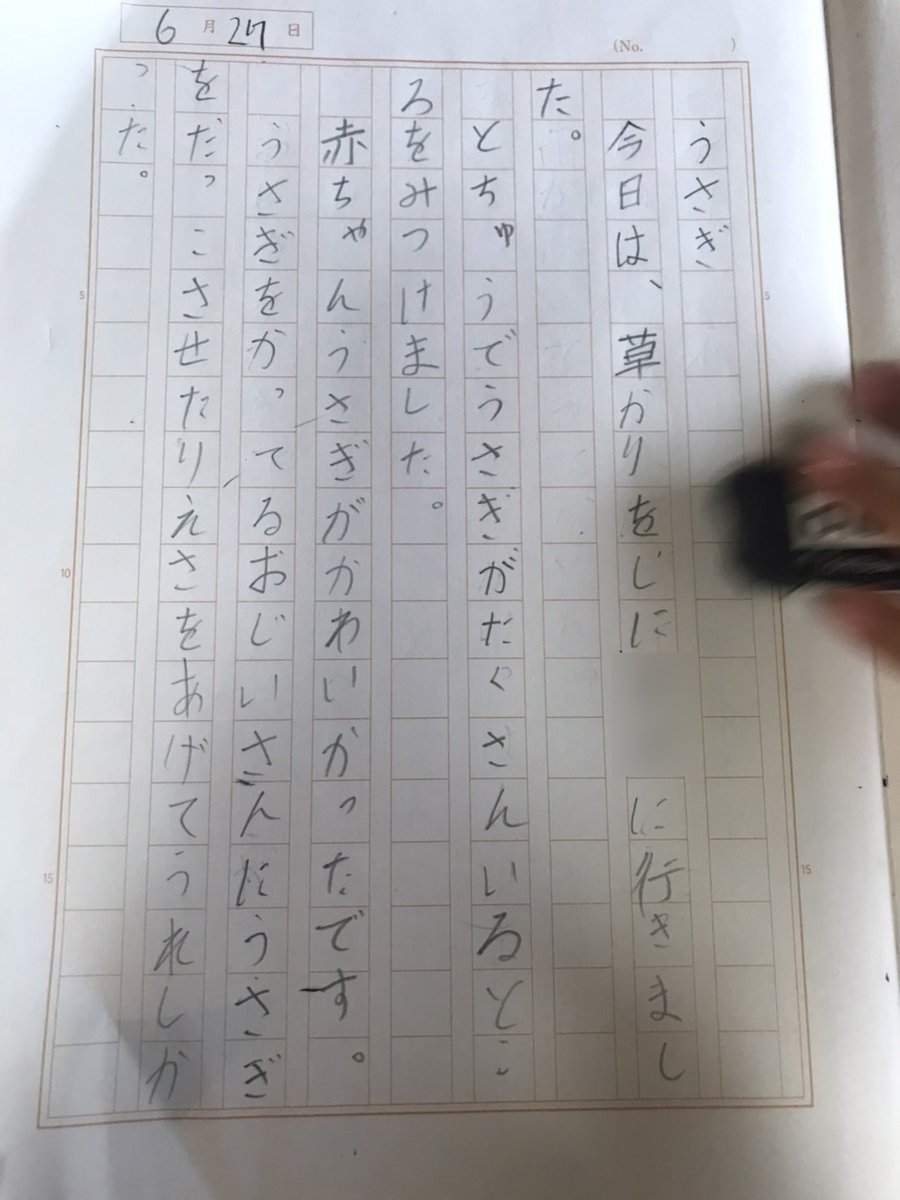 6月27日
(No. )
うさぎ
今日は、草かりをしに
に行きまし
た。
とちゅうでうさぎがたくさんいるとこ
ろをみつけました。
赤ちゃんうさぎがかわいかったです。
うさぎをかってるおじいさんにうさぎ
をだっこさせたりえさをあげてうれしか
った。
5
10
15
5
15